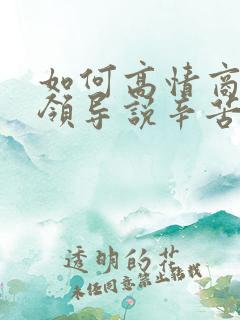 如何高情商
领导说辛苦
透明的花
未经同意禁止转载